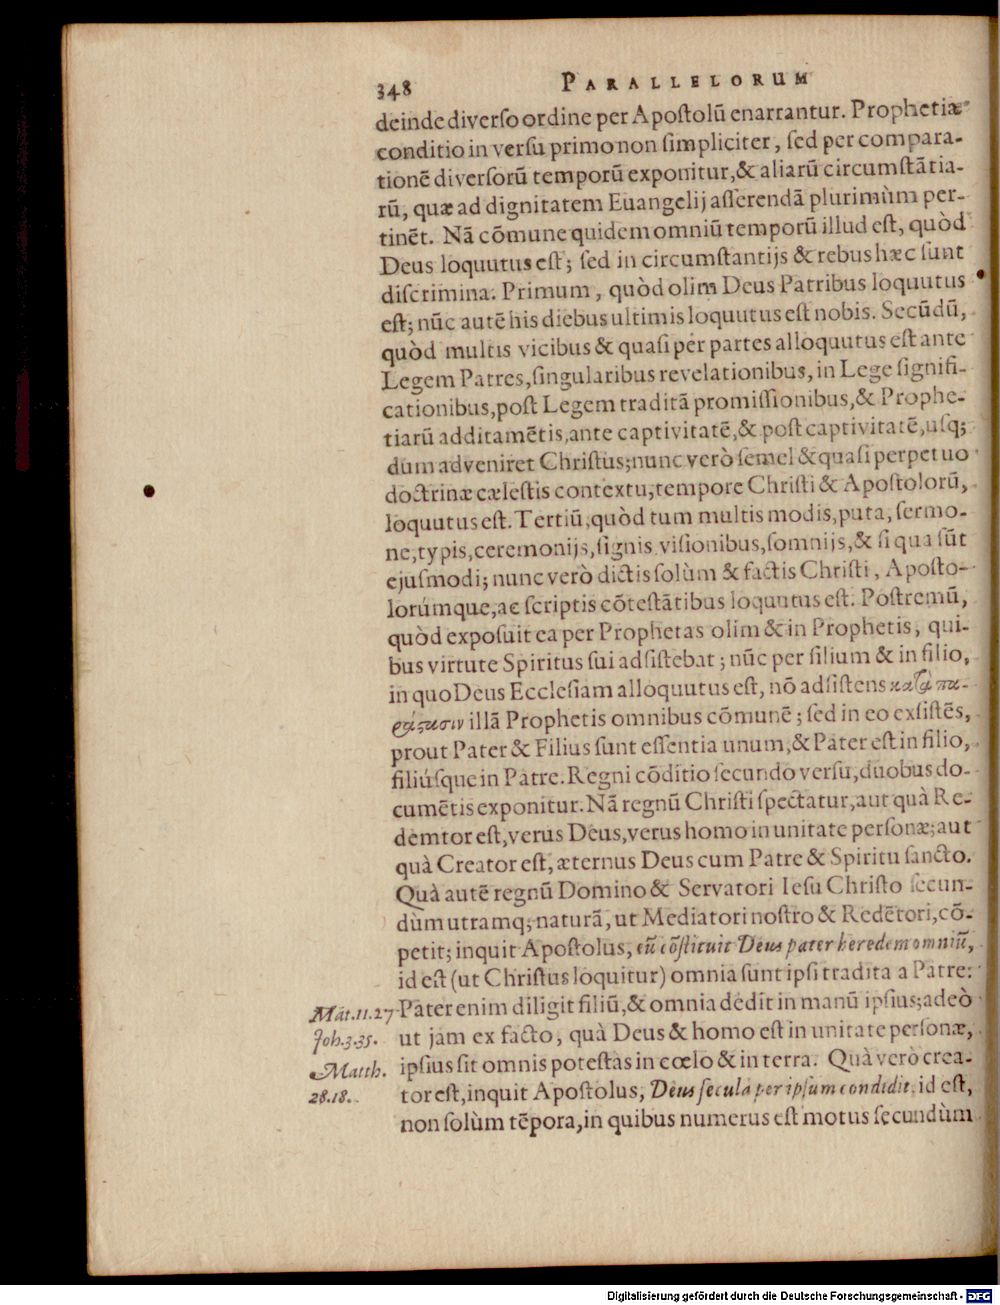 348 PARALLELORUM
deinde diverso ordine per Apostolū enarrantur. Prophetiæ
conditio in versu primo non simpliciter, sed per compara-
tionē diversorū temporū exponitur, & aliarū circumstātia-
rū, quæ ad dignitatem Euangelij asserendā plurimùm per-
tinēt. Nā cōmune quidem omniū temporū illud est, quòd
Deus loquutus est; sed in circumstantijs & rebus hæc sunt
discrimina. Primum, quòd olim Deus Patribus loquutus
est; nūc autē his diebus ultimis loquutus est nobis. Secūdū,
quòd multis vicibus & quasi per partes alloquutus est ante
Legem Patres, singularibus revelationibus, in Lege signifi-
cationibus, post Legem traditā promissionibus, & Prophe-
tiarū additamētis, ante captivitatē, & post captivitatē, usq;
dum adveniret Christus; nunc verò semel & quasi perpetuo
doctrinæ cælestis contextu, tempore Christi & Apostolorū,
loquutus est. Tertiū, quòd tum multis modis, puta, sermo-
ne, typis, ceremonijs, signis, visionibus, somnijs, & si qua sūt
ejusmodi; nunc verò dictis solùm & factis Christi, Aposto-
lorúmque, ac scriptis cōtestātibus loquutus est. Postremū,
quòd exposuit ea per Prophetas olim & in Prophetis, qui-
bus virtute Spiritus sui adsistebat; nūc per filium & in filio,
in quo Deus Ecclesiam alloquutus est, nō adsistens κατὰ πα-
ράστασιν illā Prophetis omnibus cōmunē; sed in eo exsistēs,
prout Pater & Filius sunt essentia unum, & Pater est in filio,
filiúsque in Patre. Regni cōditio secundo versu, duobus do-
cumētis exponitur. Nā regnū Christi spectatur, aut quà Re-
demtor est, verus Deus, verus homo in unitate personæ; aut
quà Creator est, æternus Deus cum Patre & Spiritu sancto.
Quà autē regnū Domino & Servatori Iesu Christo secun-
dùm utramq; naturā, ut Mediatori nostro & Redētori, cō-
petit; inquit Apostolus, eū cōstituit Deus pater heredem omniū,
id est (ut Christus loquitur) omnia sunt ipsi tradita a Patre:
Mat. 11. 27 Pater enim diligit filiū, & omnia dedit in manū ipsius; adeò
Joh. 3. 35. ut jam ex facto, quà Deus & homo est in unitate personæ,
Matth. ipsius sit omnis potestas in cœlo & in terra. Quà verò crea-
28. 18. tor est, inquit Apostolus, Deus secula per ipsum condidit, id est,
non solùm tēpora, in quibus numerus est motus secundùm
Digitalisierung gefördert durch die Deutsche Forschungsgemeinschaft - DFG